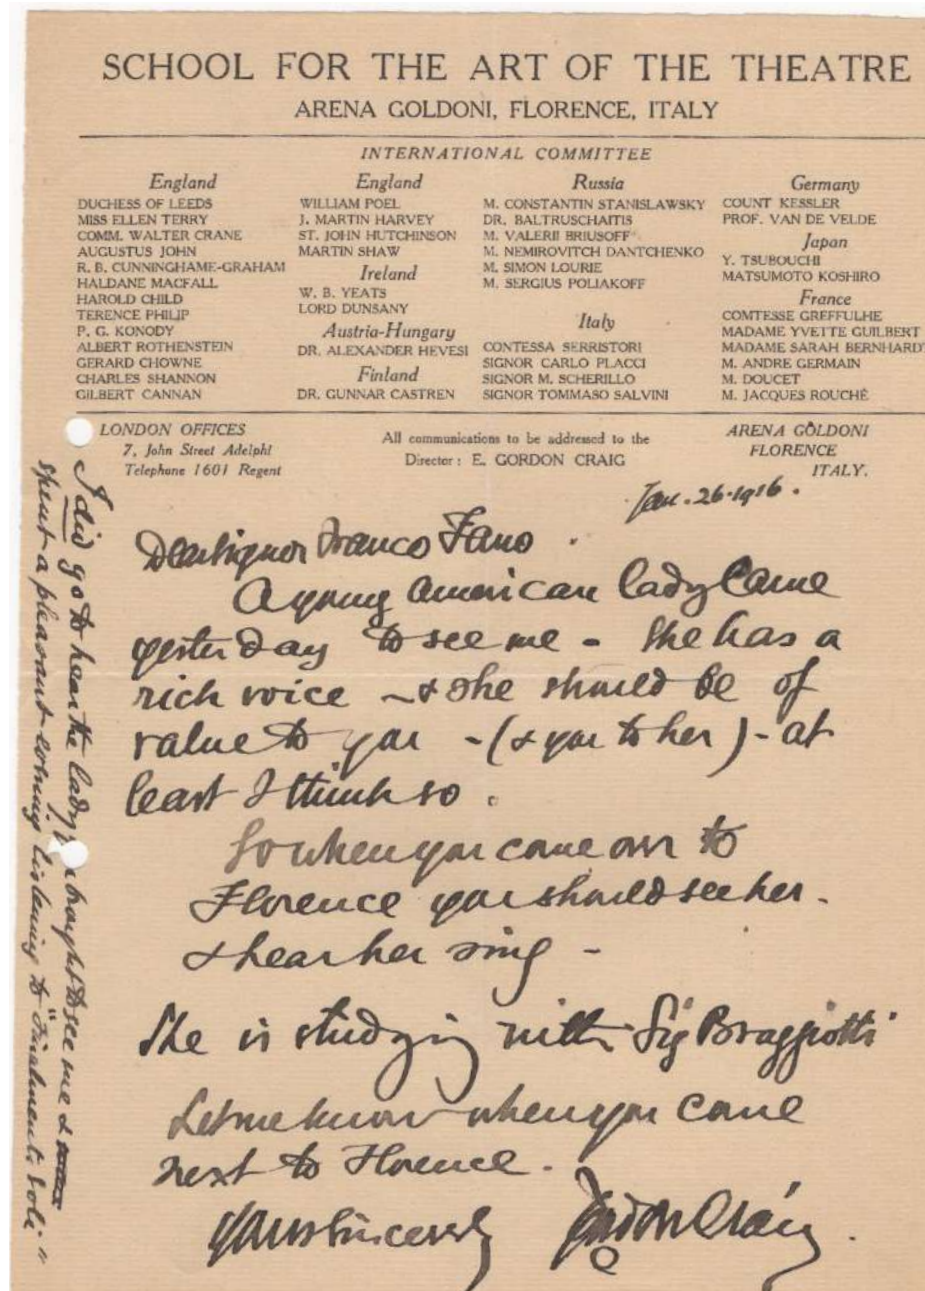 SCHOOL FOR THE ART OF THE THEATRE
ARENA GOLDONI, FLORENCE, ITALY
INTERNATIONAL COMMITTEE
England
DUCHESS OF LEEDS
MISS ELLEN TERRY
COMM. WALTER CRANE
AUGUSTUS JOHN
R. B. CUNNINGHAME-GRAHAM
HALDANE MACFALL
HAROLD CHILD
TERENCE PHILIP
P. G. KONODY
ALBERT ROTHENSTEIN
GERARD CHOWNE
CHARLES SHANNON
GILBERT CANNAN
England
WILLIAM POEL
J. MARTIN HARVEY
ST. JOHN HUTCHINSON
MARTIN SHAW
Ireland
W. B. YEATS
LORD DUNSANY
Austria-Hungary
DR. ALEXANDER HEVESI
Finland
DR. GUNNAR CASTREN
Russia
M. CONSTANTIN STANISLAWSKY
DR. BALTRUSCHAITIS
M. VALERII BRIUSOFF
M. NEMIROVITCH DANTCHENKO
M. SIMON LOURIE
M. SERGIUS POLIAKOFF
Italy
CONTESSA SERRISTORI
SIGNOR CARLO PLACCI
SIGNOR M. SCHERILLO
SIGNOR TOMMASO SALVINI
Germany
COUNT KESSLER
PROF. VAN DE VELDE
Japan
Y. TSUBOUCHI
MATSUMOTO KOSHIRO
France
COMTESSE GREFFULHE
MADAME YVETTE GUILBERT
MADAME SARAH BERNHARDT
M. ANDRE GERMAIN
M. DOUCET
M. JACQUES ROUCHÉ
LONDON OFFICES
7, John Street Adelphi
Telephone 1601 Regent
All communications to be addressed to the
Director: E. GORDON CRAIG
ARENA GOLDONI
FLORENCE
ITALY.
Jan. 26. 1916.
Dear Signor Franco Fano.
A young American lady came
yesterday to see me - She has a
rich voice - & she should be of
value to you - (& you to her) - at
least I think so.
So when you come over to
Florence you should see her.
& hear her sing -
She is studying with Sig Braggiotti
Let me know when you come
next to Florence.
Yours sincerely Gordon Craig.
I did go to hear the lady brought to see me &
spent a pleasant evening listening to "Finalmente Soli."